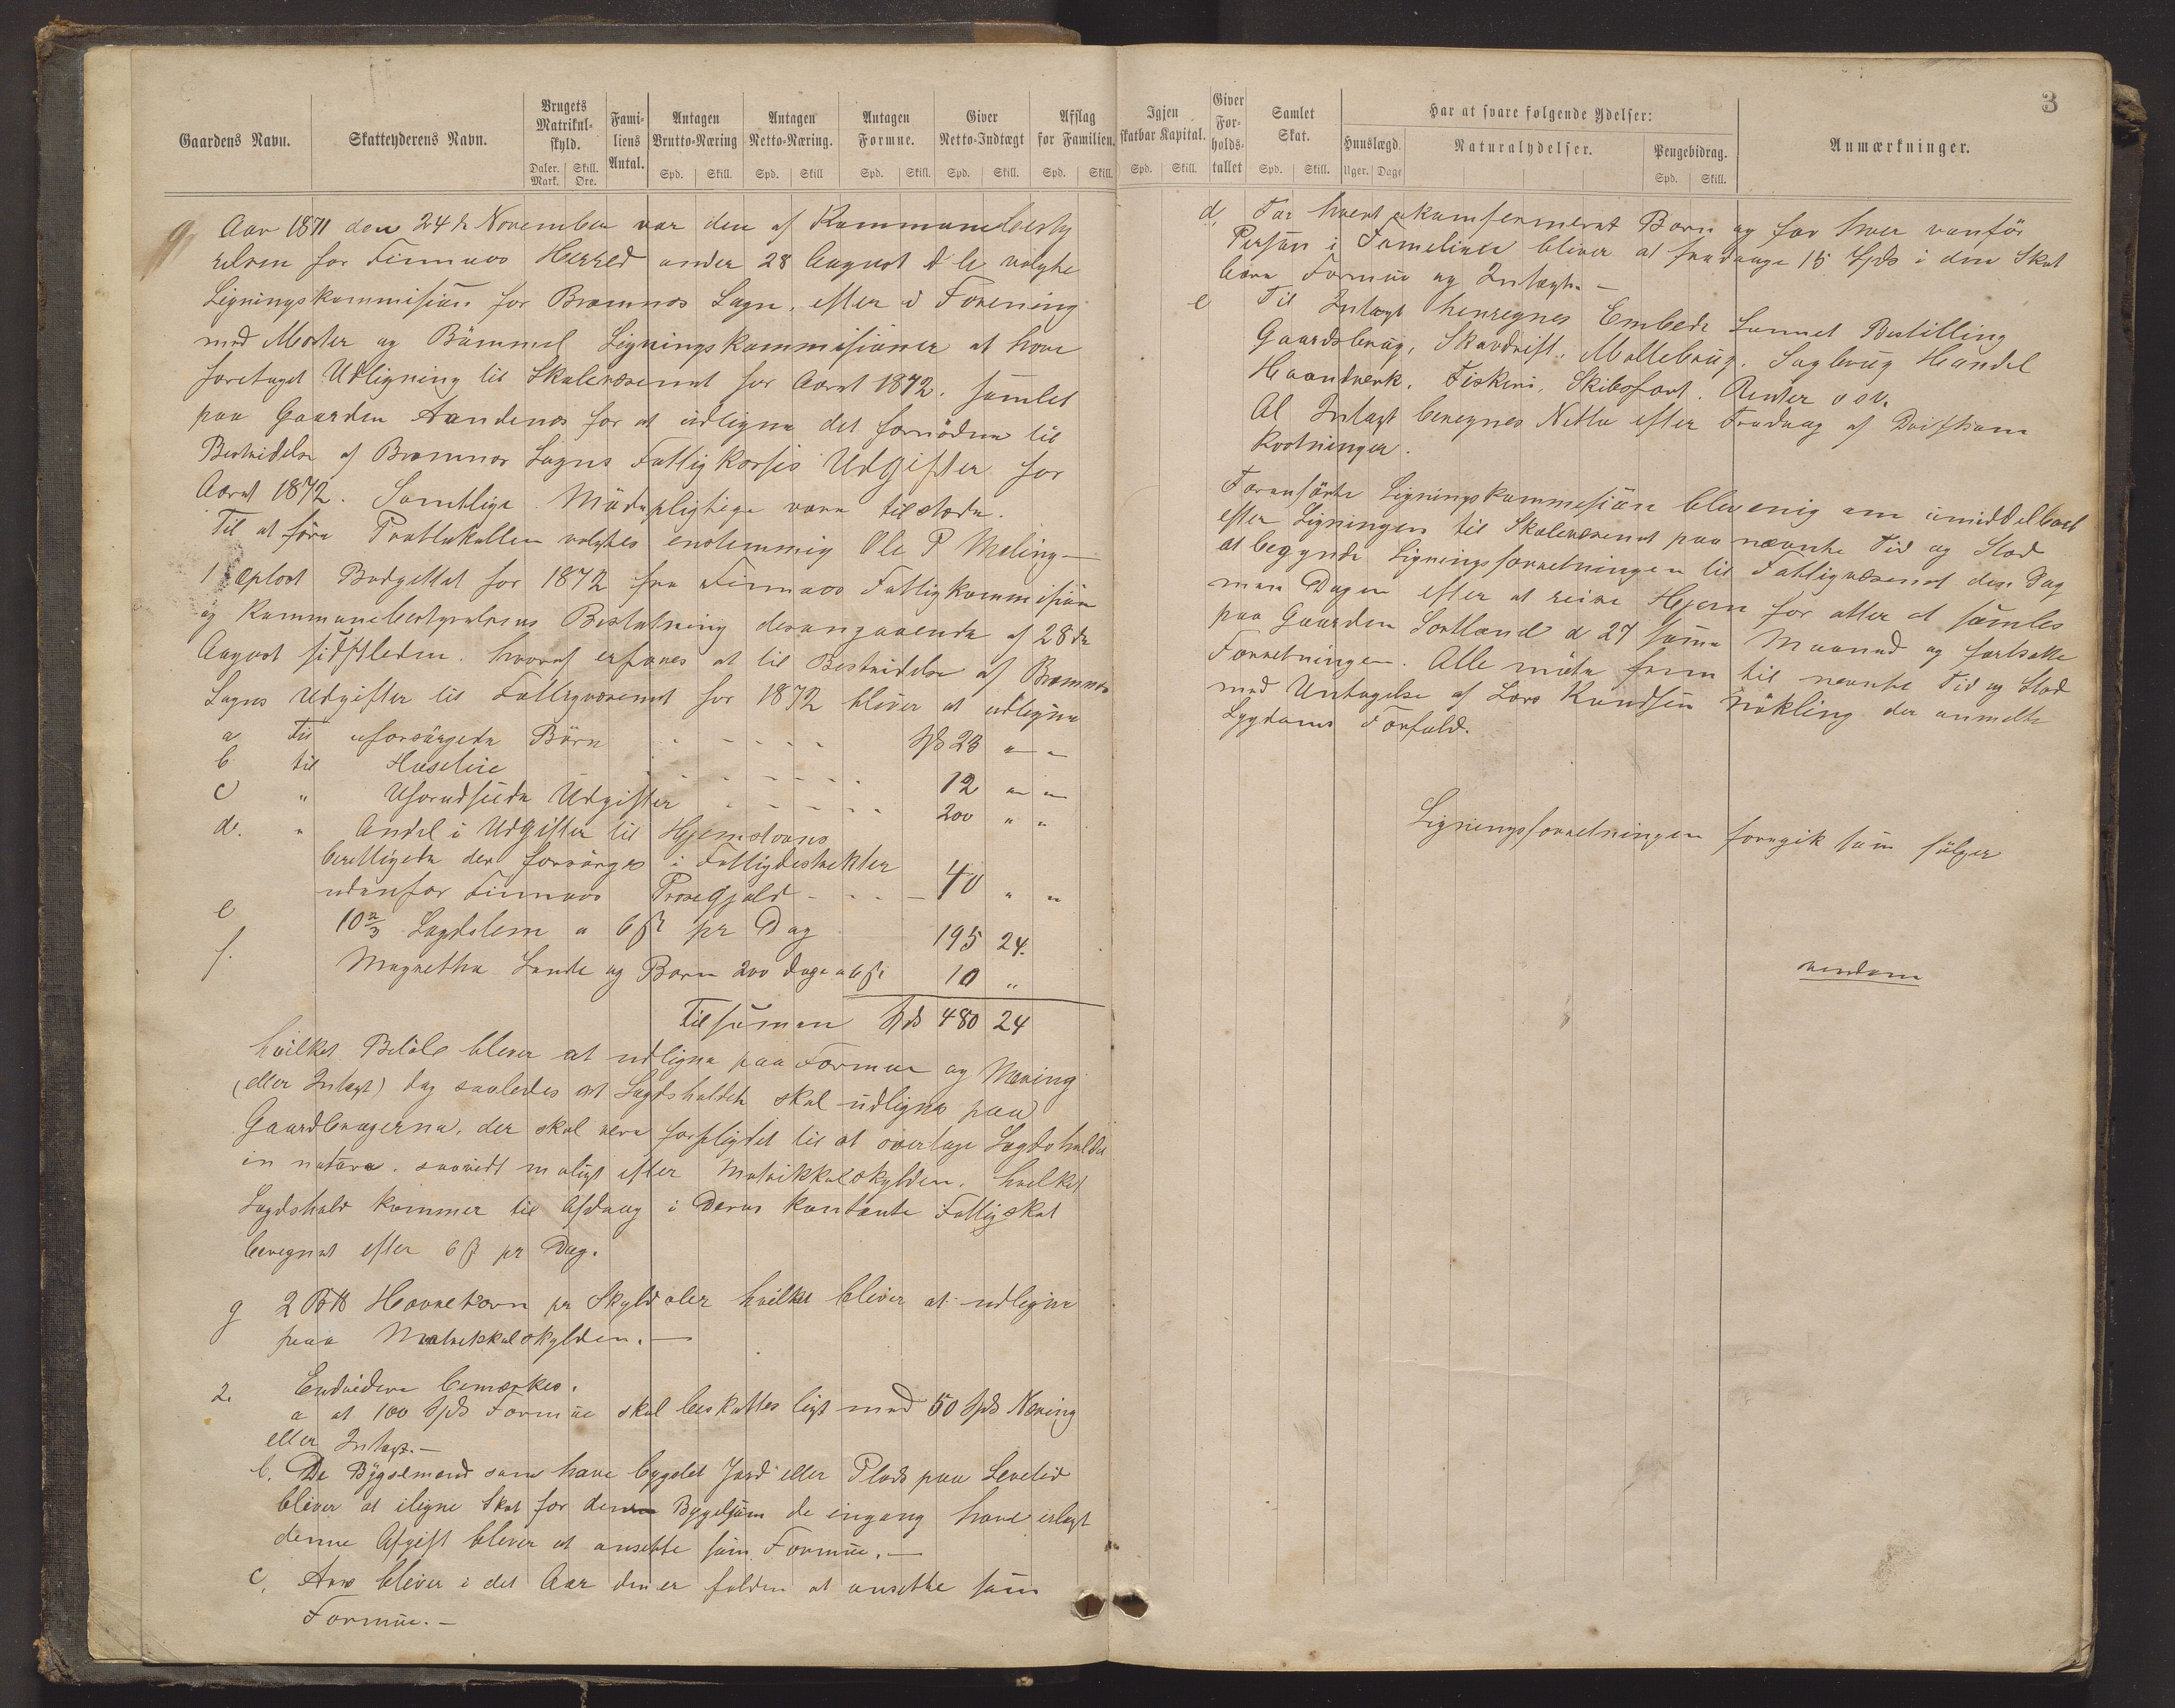 3
Gaardens Navn.
Skatteyderens Navn.
Brugets Matrikul-skyld.
Daler. Mark. Skill. Øre.
Fami-liens Antal.
Antagen Brutto-Næring
Spd. Skill.
Antagen Netto-Næring.
Spd. Skill
Antagen Formue.
Spd. Skill.
Giver Netto-Indtægt
Spd. Skill.
Afslag for Familien.
Spd. Skill.
Igjen skatbar Kapital.
Spd. Skill.
Giver For-holds-tallet
Samlet Skat.
Spd. Skill.
Har at svare følgende Ydelser:
Huuslægd.
Uger. Dage
Naturalydelser.
Pengebidrag.
Spd. Skill.
Anmærkninger.
Aar 1871 den 24de November var den af Kommunebesty
relsen for Finnaas Herred under 28 August d A valgte
Ligningskommisiön for Bremnes Sogn, efter i Forening
med Moster og Bömmel Ligningskommisioner at have
foretaget Udligning til Skolevæsenet for Aaret 1872. samlet
paa Gaarden Aandenes for at udligne det fornödne til
Bestridelse af Bremnes Sogns Fattigkasses Udgifter for
Aaret 1872. Samtlige Mödepligtige vare tilstede.
Til at före Protokollen valgtes enstemmig Ole P Meling
1 oplæst Budgettet for 1872 fra Finnaas Fattigkommisiön
og Kommunebestyrelsens Beslutning desangaaende af 28de
August sidstleden. hvoraf erfares at til Bestridelse af Bremnes
Sogns Udgifter til Fattigvæsenet for 1872 bliver at udligne
a Til uforsörgede Börn - - - - - Spd 23 " "
b til Huseleie - - - - - - 12 " "
c " Uforudseede Udgifter - - - - - 200 " "
d. " Andel i Udgifter til Hjemstavns
berettigede der forsörges i Fattigdestrekter
udenfor Finnaas Presegjeld - - - 40 " "
e 10 2/3 Lægdslem a 6 ß pr Dag 195 24.
f. Magnetha Lunde og Barn 200 dage a 6 ß 10 "
Tilsamen Spd 480 24
hvilket Belöb bliver at udligne paa Formue og Næring
(eller Intægt) dog saaledes at Lægdsholdet skal udlignes paa
Gaardbrugerne, der skal være forpligtet til at overtage Lægdsholdet
in natura. saavidt muligt efter Matrikkulskylden. hvilket
Lægdshold kommer til Afdrag i Deres kontante Fattigskat
beregnet efter 6 ß pr Dag.
g 2 Havrekorn pr Skylddaler hvilket bliver at udligne
paa Matrikkulskylden. —
2. Endvidere bemærkes.
a at 100 Spd Formue skal beskattes ligt med 50 Spd Næring
eller Intægt. —
b. De Bygselmænd som have bygslet Jord eller Plads paa Levetid
bliver at iligne Skat for den Bygselsum de engang have erlagt
denne Afgift bliver at ansette som Formue. —
c. Arv bliver i det Aar den er falden at ansette som
Formue. —
d. For hvert ukomfermeret Barn og for hver vanför
Person i Famelien bliver at fradrage 15 Spd i den Skat
bare Formue og Intægt. —
e Til Intægt henregnes Embede Lønnet Bestilling
Gaardsbrug, Skovdrift, Mollebrug, Sagbrug Handel
Haandverk, Fiskeri, Skibsfart. Renter osv.
Al Intægt beregnes Netto efter Fradrag af Driftsom
kostninger.
Foranförte Ligningskommesiön blev enig om umiddelbart
efter Ligningen til Skolevæsenet paa nævnte Tid og Sted
at begynde Ligningsforretningen til Fattigvæsenet den Dag
men Dagen efter at reise Hjem for atter at samles
paa Gaarden Sortland d 27 samme Maaned og fortsette
Forretningen. Alle möte frem til nevnte Tid og Sted
med Untagelse af Lars Knudsen Nökling der anmelte
Sygdoms Forfald.
Ligningsforretningen foregik som fölger
vendom